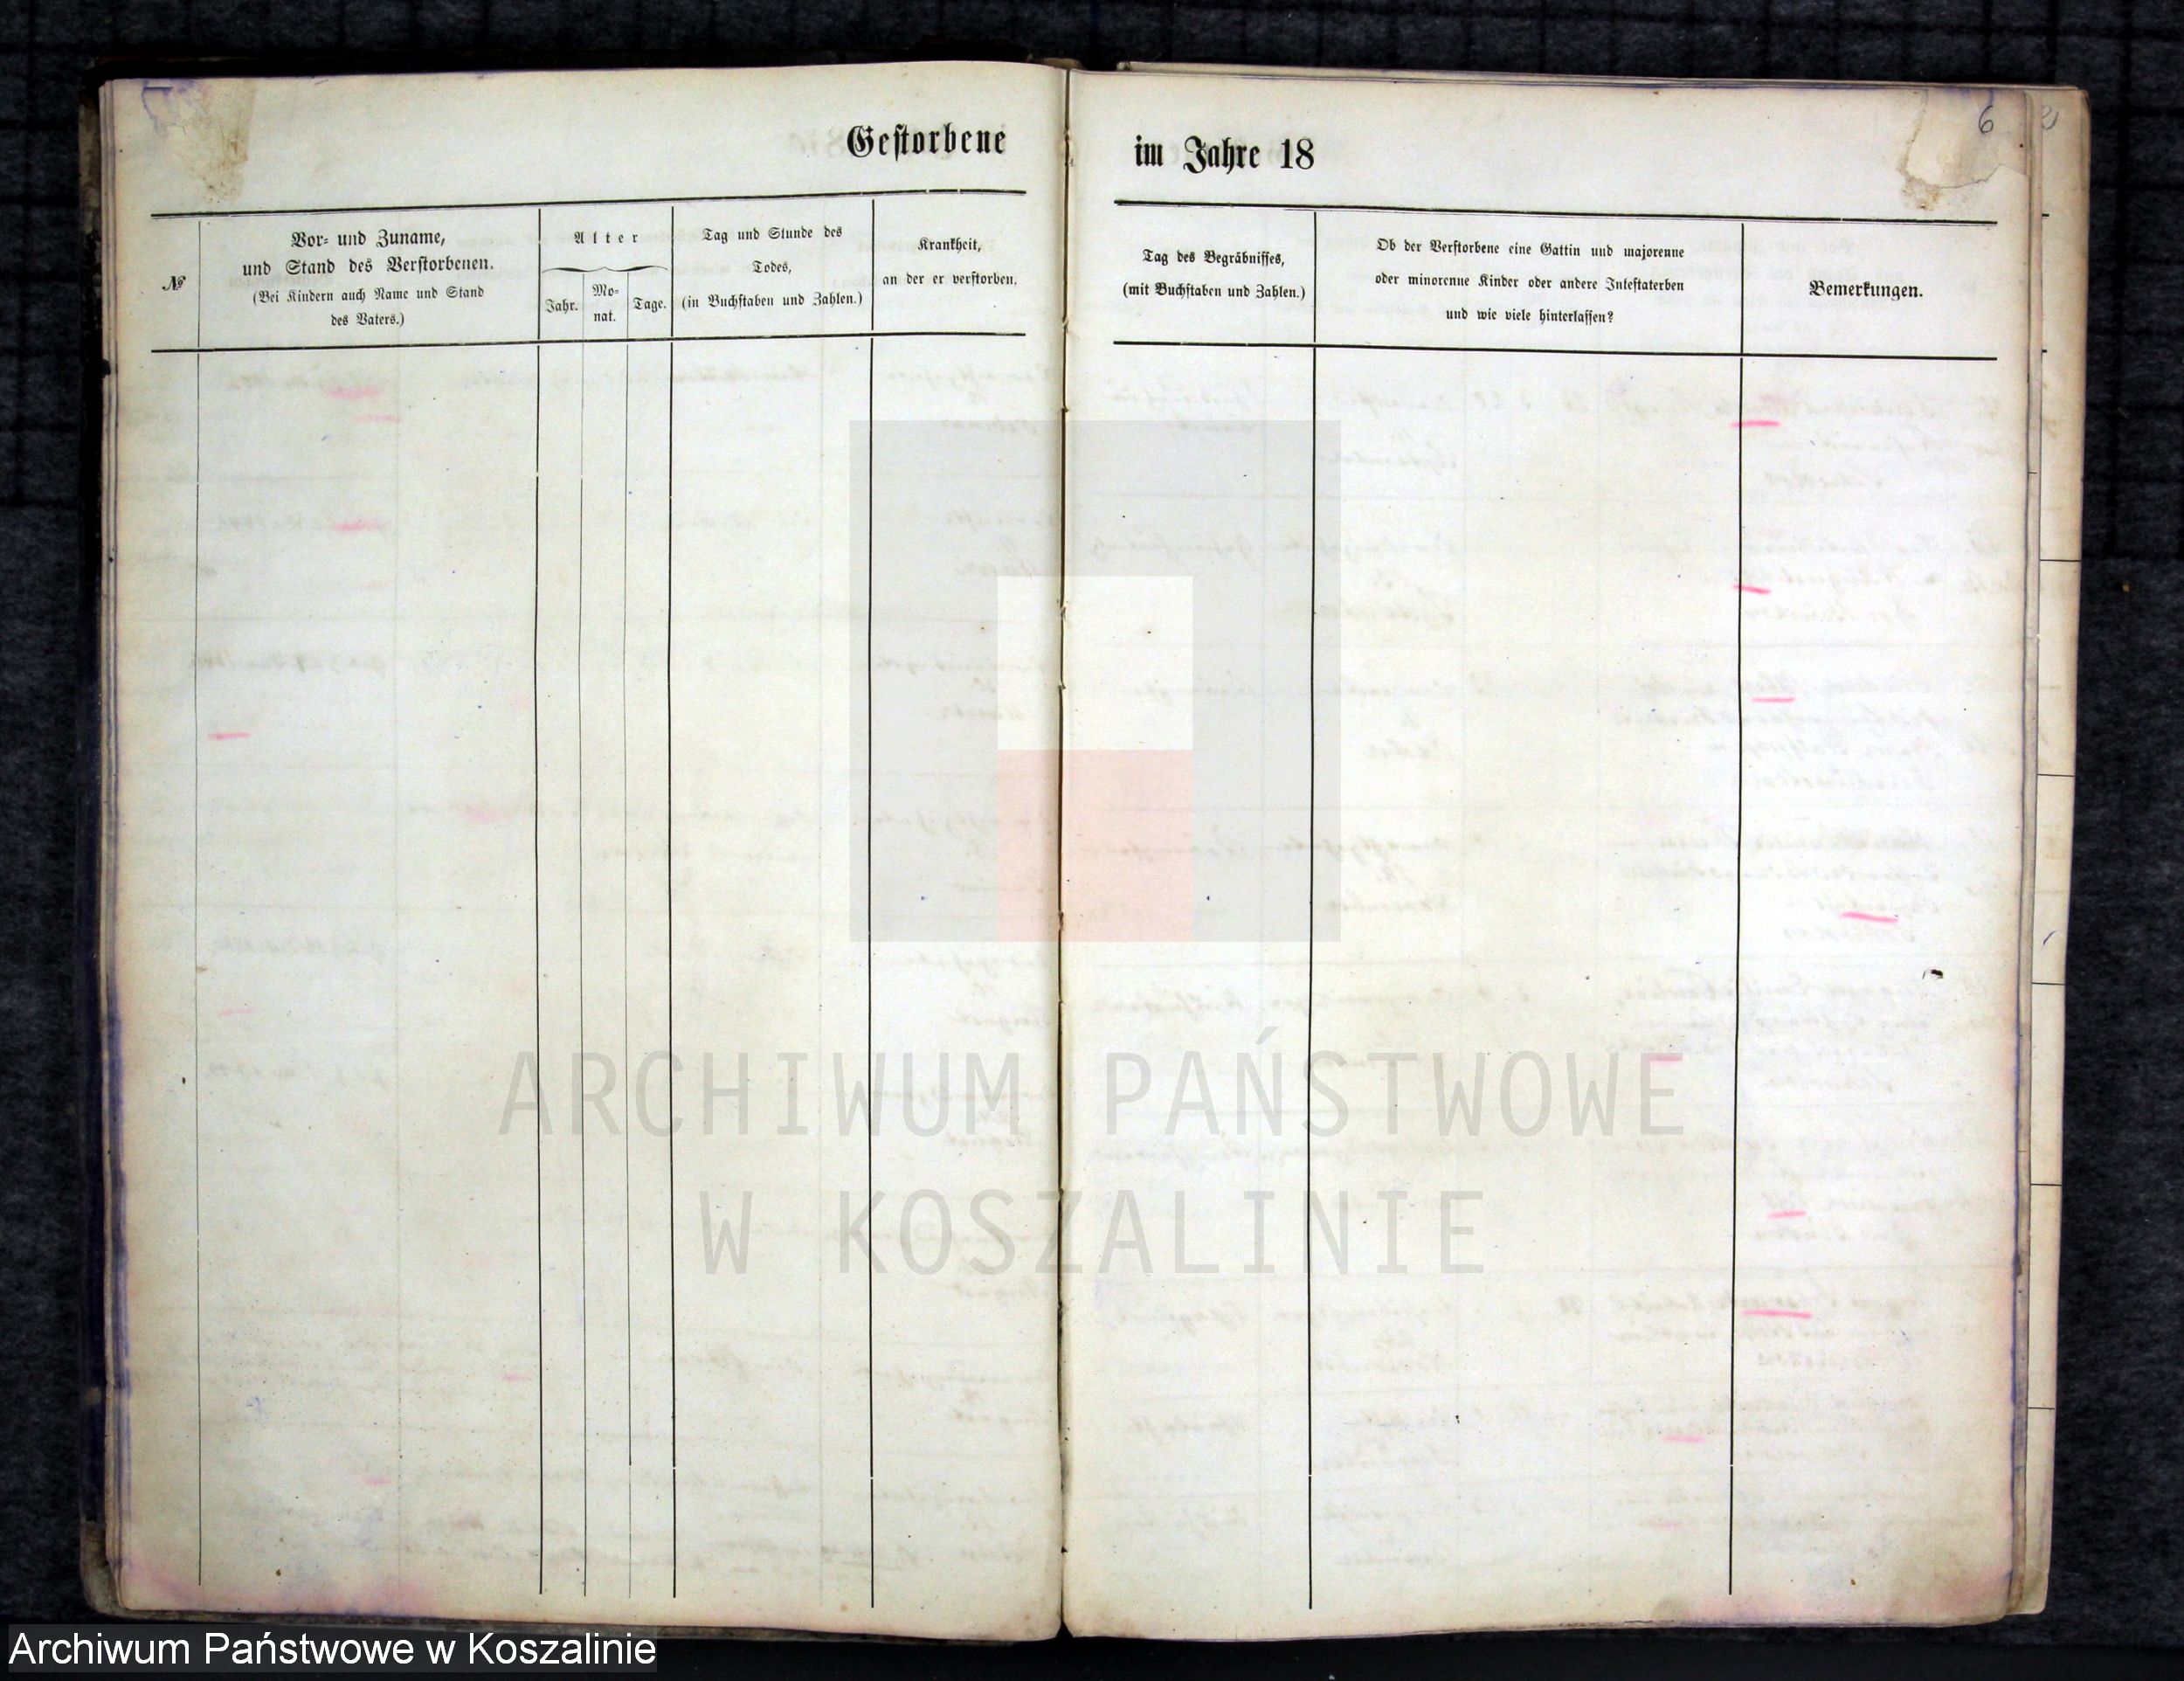 6
Gestorbene
im Jahre 18
№
Vor- und Zuname,
und Stand des Verstorbenen.
(Bei Kindern auch Name und Stand
des Vaters.)
Alter
Jahr.
Mo-
nat.
Tage.
Tag und Stunde des
Todes,
(in Buchstaben und Zahlen.)
Krankheit,
an der er verstorben.
Tag des Begräbnisses,
(mit Buchstaben und Zahlen.)
Ob der Verstorbene eine Gattin und majorenne
oder minorenne Kinder oder andere Intestaterben
und wie viele hinterlassen?
Bemerkungen.
ARCHIWUM PAŃSTWOWE
W KOSZALINIE
Archiwum Państwowe w Koszalinie